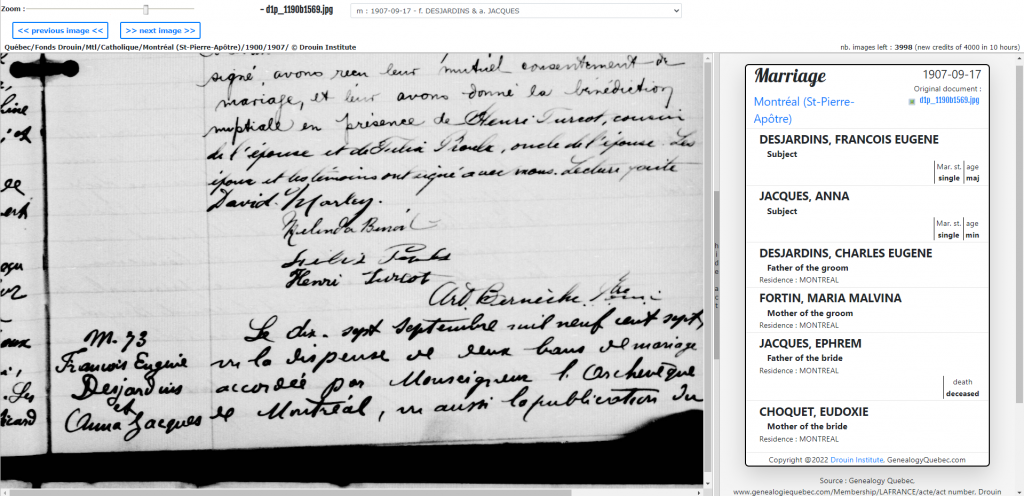 Zoom :
- d1p_1190b1569.jpg
m : 1907-09-17 - f. DESJARDINS & a. JACQUES
<< previous image <<
>> next image >>
Québec/Fonds Drouin/Mtl/Catholique/Montréal (St-Pierre-Apôtre)/1900/1907/ © Drouin Institute
nb. images left : 3998 (new credits of 4000 in 10 hours)
signé, avons reçu leur mutuel consentement de
mariage, et leur avons donné la bénédiction
nuptiale en présence de Henri Turcot, cousin
de l'épouse et de Félix Proulx, oncle de l'épouse. Les
époux et les témoins ont signé avec nous. Lecture faite
David Morley.
Melinda Benoit
Félix Proulx
Henri Turcot
Le dix-sept septembre mil neuf cent sept,
M. 73
vu la dispense de deux bans de mariage
Francois Eugène
accordée par Monseigneur l'Archevêque
Desjardins
et
de Montréal, vu aussi la publication du
Anna Jacques
hide act
Marriage
1907-09-17
Original document :
d1p_1190b1569.jpg
Montréal (St-Pierre-
Apôtre)
DESJARDINS, FRANCOIS EUGENE
Subject
Mar. st. age
single maj
JACQUES, ANNA
Subject
Mar. st. age
single min
DESJARDINS, CHARLES EUGENE
Father of the groom
Residence : MONTREAL
FORTIN, MARIA MALVINA
Mother of the groom
Residence : MONTREAL
JACQUES, EPHREM
Father of the bride
Residence : MONTREAL
death
deceased
CHOQUET, EUDOXIE
Mother of the bride
Residence : MONTREAL
Copyright @2022 Drouin Institute, GenealogyQuebec.com
Source : Genealogy Quebec.
www.genealogiequebec.com/Membership/LAFRANCE/acte/act number. Drouin